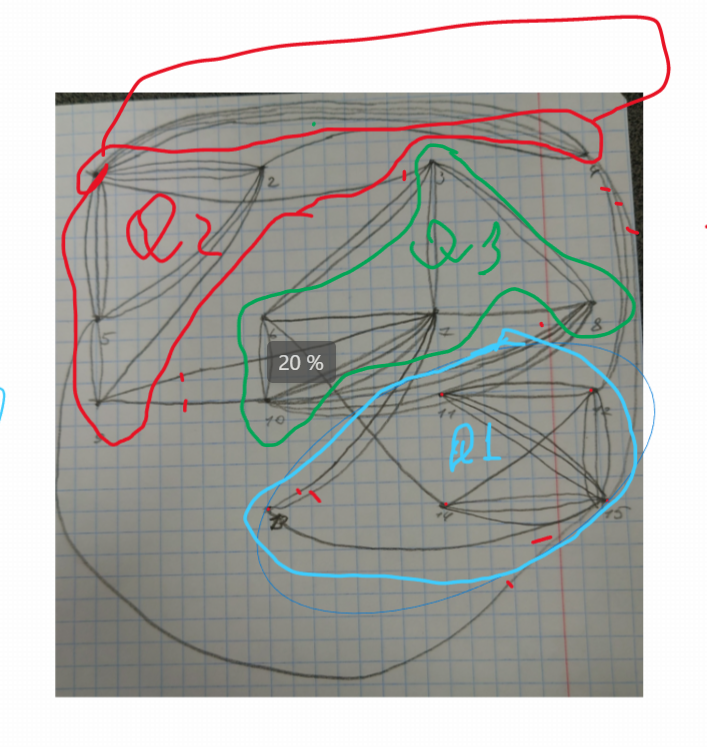 2
3
4
Q2
Q3
5
6
7
8
20 %
10
11
12
Q1
14
15